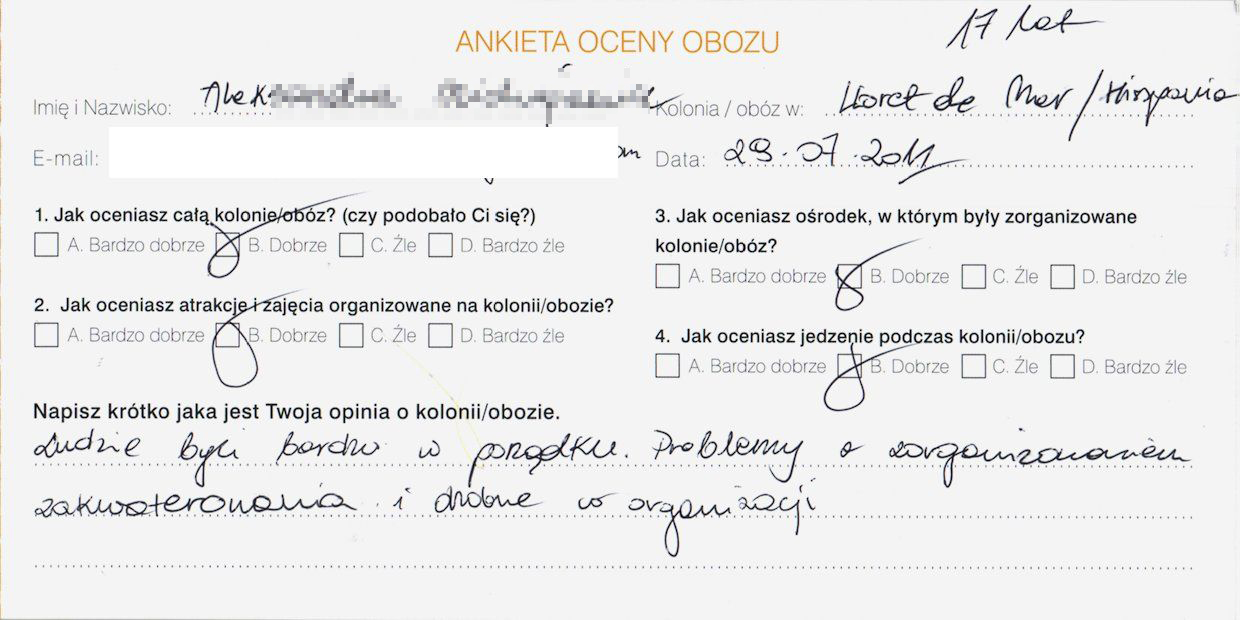 17 lat
ANKIETA OCENY OBOZU
Imię i Nazwisko: Kolonia / obóz w: Lloret de Mar / Hiszpania
E-mail: Data: 29.07.2011
1. Jak oceniasz całą kolonie/obóz? (czy podobało Ci się?)
A. Bardzo dobrze B. Dobrze C. Źle D. Bardzo źle
2. Jak oceniasz atrakcje i zajęcia organizowane na kolonii/obozie?
A. Bardzo dobrze B. Dobrze C. Źle D. Bardzo źle
3. Jak oceniasz ośrodek, w którym były zorganizowane
kolonie/obóz?
A. Bardzo dobrze B. Dobrze C. Źle D. Bardzo źle
4. Jak oceniasz jedzenie podczas kolonii/obozu?
A. Bardzo dobrze B. Dobrze C. Źle D. Bardzo źle
Napisz krótko jaka jest Twoja opinia o kolonii/obozie.
Ludzie byli bardzo w porządku. Problemy z zorganizowaniem
zakwaterowania i drobne w organizacji